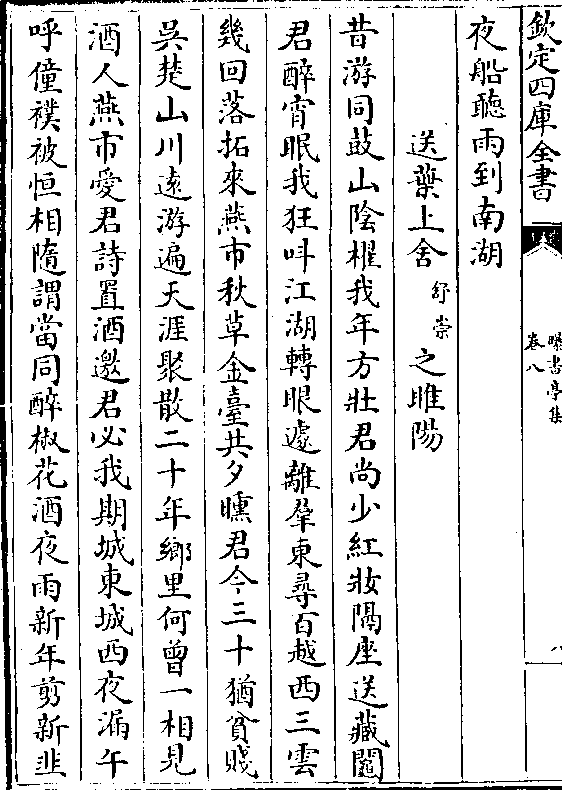 欽定四庫全書
曝書亭集
卷八
八
夜船聽雨到南湖
送葉上舍舒崇之睢陽
昔游同鼓山陰櫂我年方壯君尚少紅妝隔座送藏鬮
君醉宵眠我狂呌江湖轉眼遽離羣東尋百越西三雲
幾回落拓來燕市秋草金臺共夕曛君今三十猶貧賤
吳楚山川遠游遍天涯聚散二十年鄉里何曾一相見
酒人燕市愛君詩置酒邀君必我期城東城西夜漏午
呼僮襆被恒相隨謂當同醉椒花酒夜雨新年剪新韭